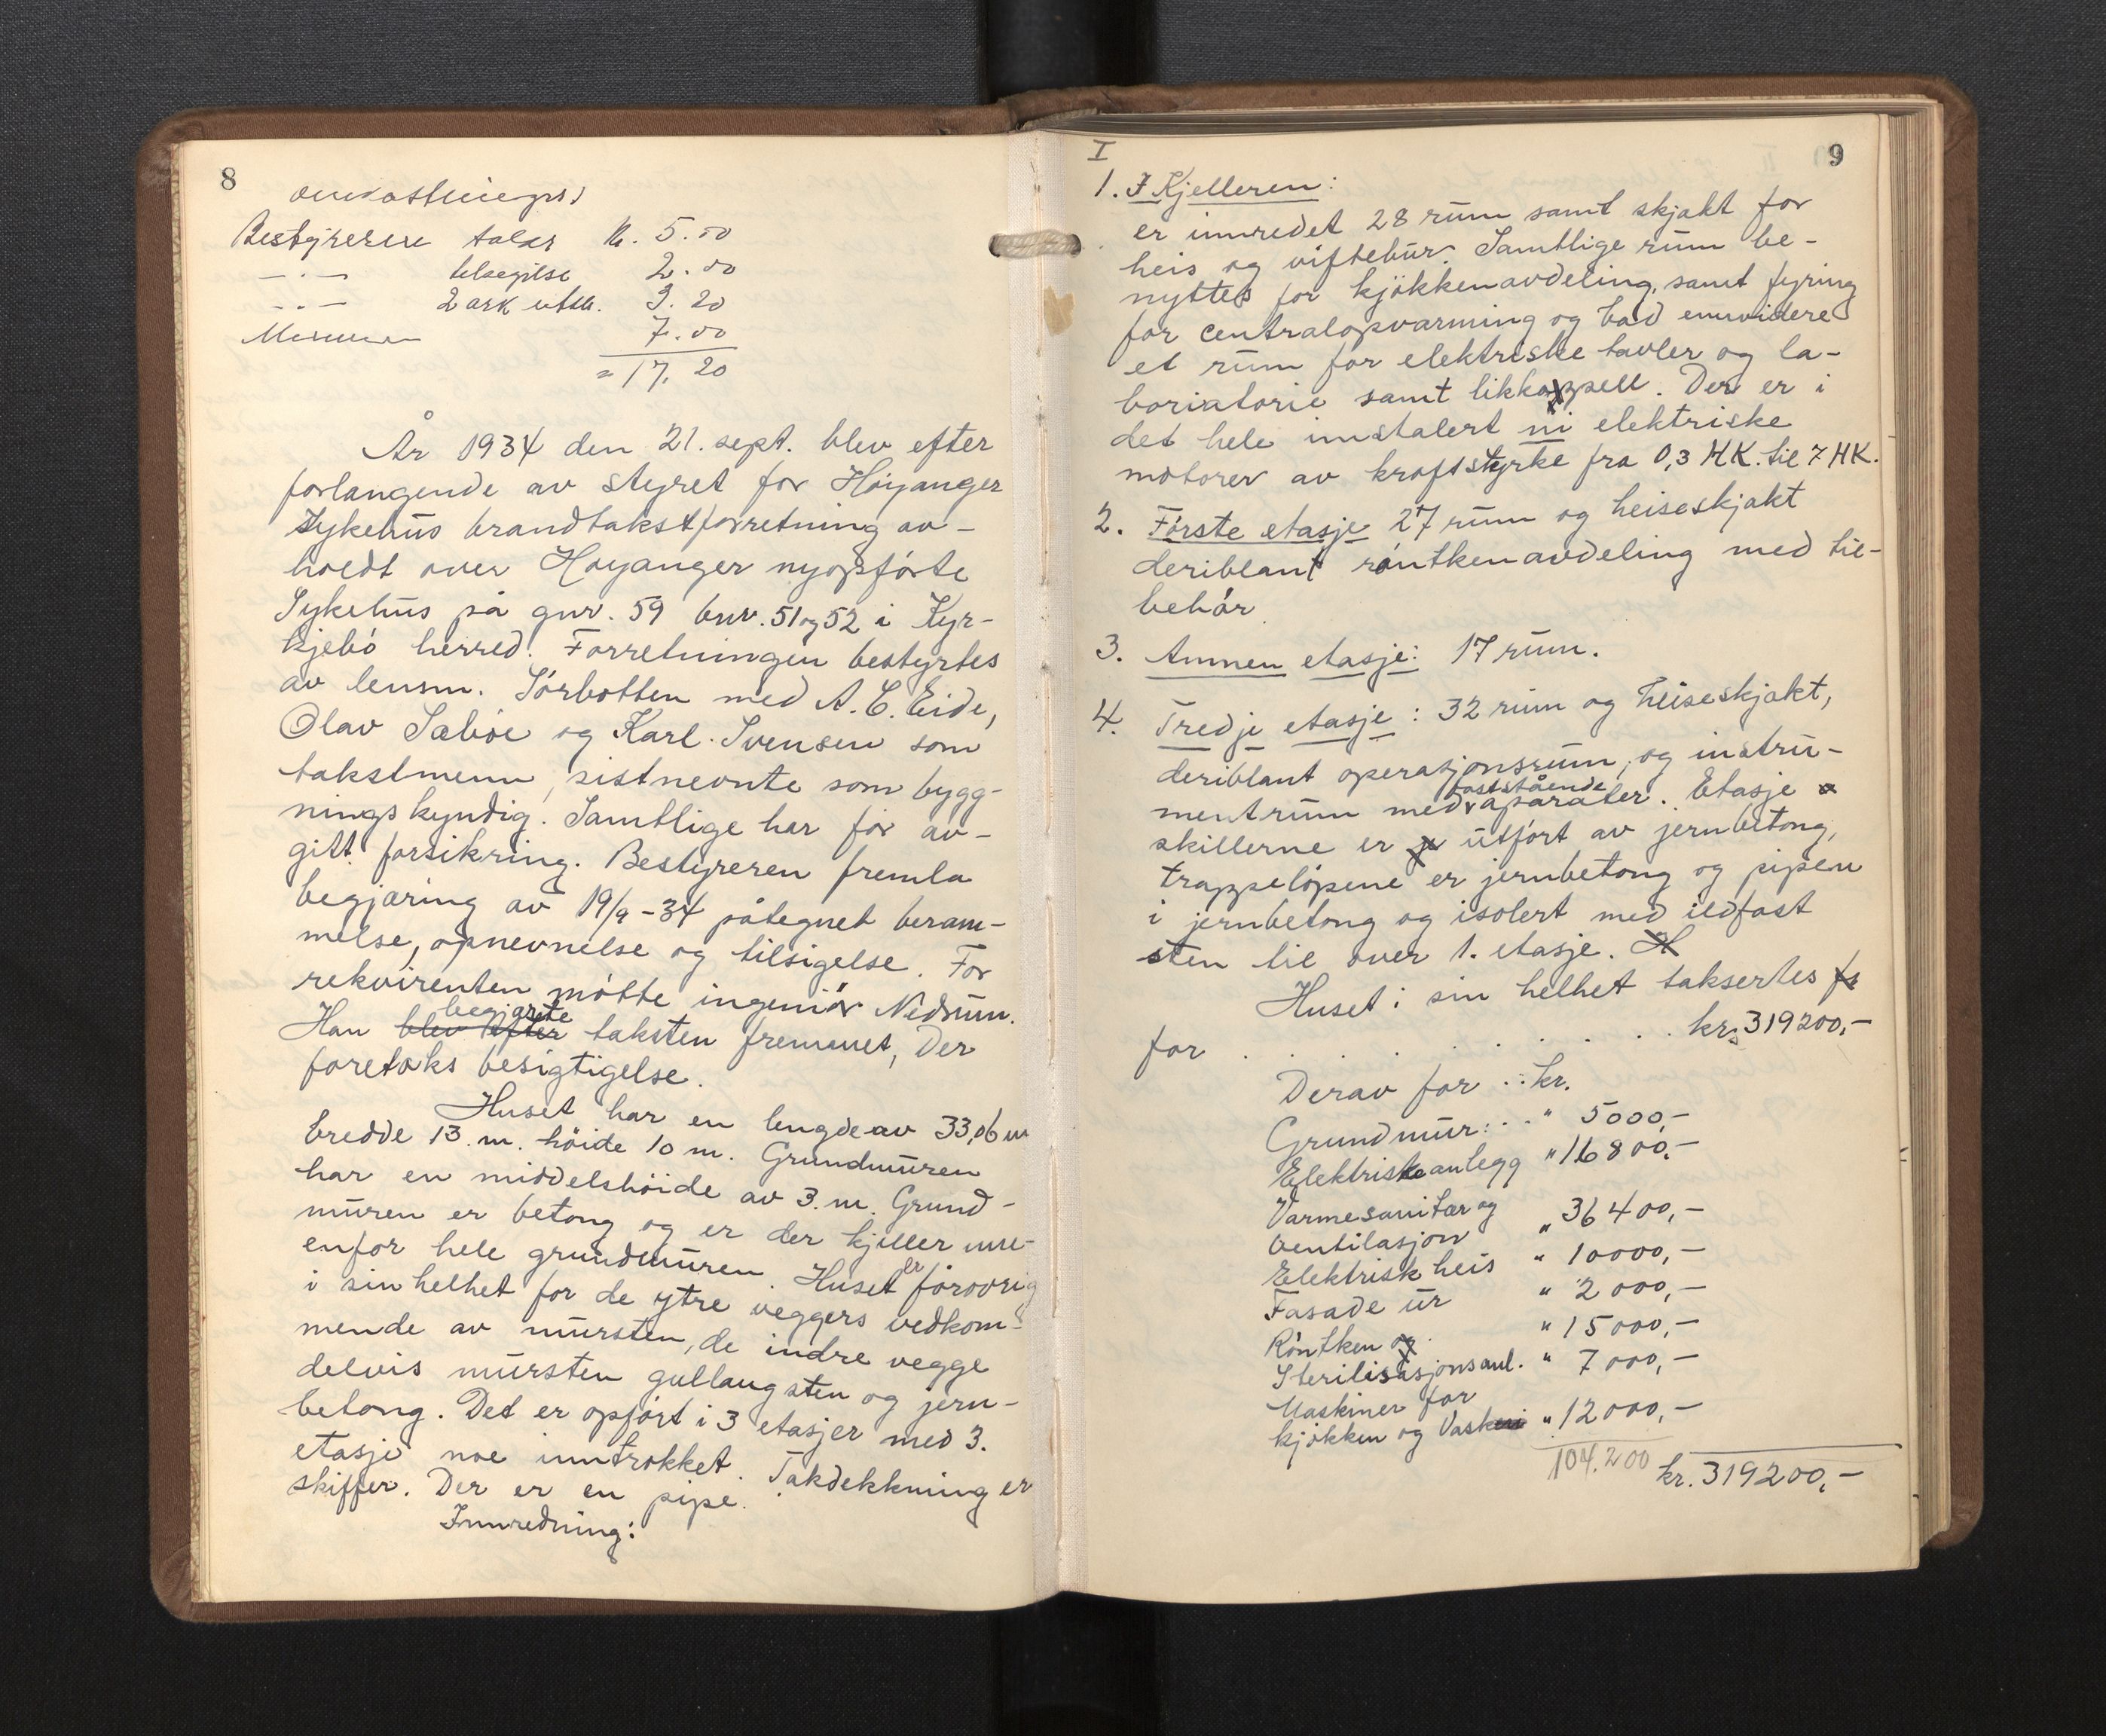 8
Bestyreren takst kr. 5.00
— " — tilsigelse 2.00
— " — 2 ark utskr. 3.20
7.00
= 17.20
År 1934 den 21. sept. blev efter
forlangende av styret for Höyanger
sykehus brandtakstforretning av-
holdt over Höyanger nyopförte
Sykehus på gnr. 59 bnr. 51 og 52 i Kyr-
kjebö herred. Forretningen bestyrtes
av lensm. Sörbotten med A. C. Eide,
Olav Saböe og Karl Svensen som
takstmenn, sistnevnte som bygg-
ningskyndig. Samtlige har för av-
gitt forsikring. Bestyreren fremla
begjæring av 19/9-34 påtegnet beram-
melse, opnevnelse og tilsigelse. For
rekvirenten mötte ingeniör Nedrum.
begjærte
Han blev efter taksten fremmet, Der
foretoks besigtigelse.
Huset har en lengde av 33,06 m
bredde 13 m. höide 10 m. Grundmuren
har en middelshöide av 3. m. Grund-
muren er betong og er der kjeller inn-
enfor hele grundmuren. Huset er forövrig
i sin helhet for de ytre veggers vedkom-
mende av mursten, de indre vegge
delvis mursten gullaugsten og jern-
betong. Det er opfört i 3 etasjer med 3.
etasje noe inntrokket. Takdekkning er
skiffer. Der er en pipe.
Innredning:
I
9
1. I Kjelleren:
er innredet 28 rum samt skjakt for
heis og viftebur. Samtlige rum be-
nyttes for kjökkenavdeling, samt fyring
for centralopvarming og bad envidere
et rum for elektriske tavler og la-
boriatorie samt likkappell. Der er i
det hele innstalert ni elektriske
motorer av kraftstyrke fra 0,3 HK. til 7 HK.
2. Förste etasje 27 rum og heiseskjakt
deriblant röntkenavdeling med til-
behör.
3. Annen etasje: 17 rum.
4. Tredje etasje: 32 rum og heiseskjakt,
deriblant operasjonsrum, og instru-
faststående
mentrum med aparater. Etasje
skillerne er utfört av jernbetong,
trappelöpene er jernbetong og pipen
i jernbetong og isolert med ildfast
sten til over 1. etasje.
Huset i sin helhet taksertes
for . . . . . . . . . kr. 319200,-
Derav for : kr.
Grundmur: . . " 5000,-
Elektriske anlegg " 16800,-
Varme sanitær og
ventilasjon " 36400,-
Elektrisk heis " 10000,-
Fasade ur " 2000,-
Röntken og " 15000,-
Sterilisasjonsanl. " 7000,-
Maskiner for
kjökken og Vaskeri " 12000,-
104.200 kr. 319200,-